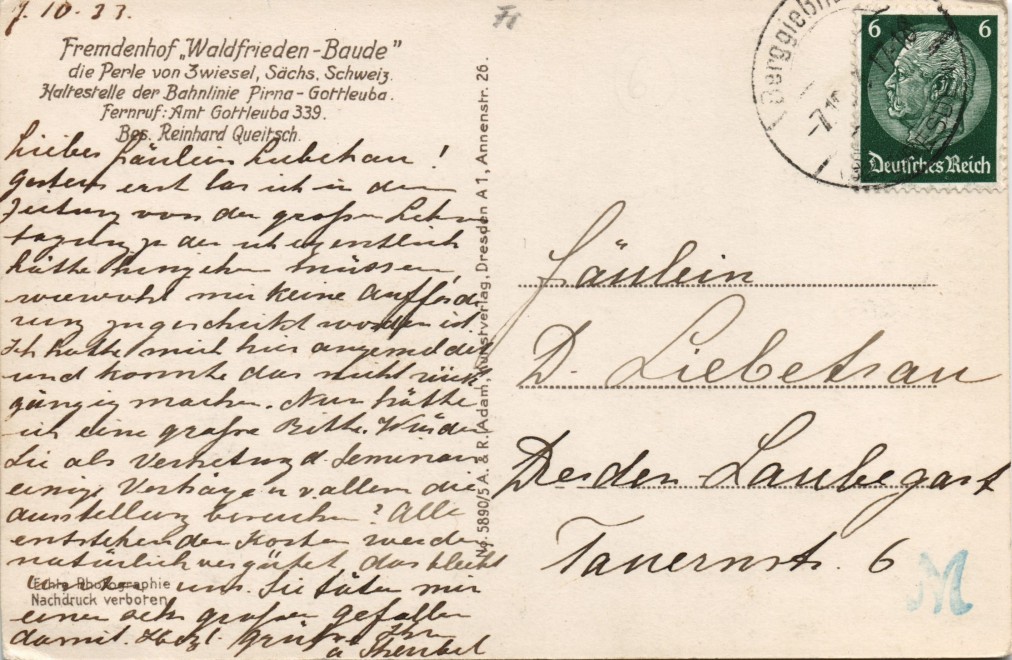 7.10.33.
Fremdenhof „Waldfrieden-Baude"
die Perle von Zwiesel, Sächs. Schweiz.
Haltestelle der Bahnlinie Pirna-Gottleuba.
Fernruf: Amt Gottleuba 339.
Bes. Reinhard Queitsch.
Liebes Fräulein Liebetrau!
Gestern erst las ich in der
Zeitung von der großen Lehr
tagung zu der ich eigentlich
hätte hingehen müssen,
wiewohl mir keine Aufforde
rung zugeschickt worden ist.
Ich hatte mich hier angemeldet
und konnte das nicht rück
gängig machen. Nun hätte
ich eine große Bitte. Würden
Sie als Vertretung d. Seminars
einige Vorträge u vallem die
Ausstellung besuchen? Alle
entstehenden Kosten werden
natürlich vergütet, das bleibt
uns. Sie täten mir
einen sehr großen Gefallen
damit. Herzl. Grüße Ihr
Echte Photographie
Nachdruck verboten
No. 5890/5 A. & R. Adam, Kunstverlag, Dresden A 1, Annenstr. 26.
Berggießhübel
6 6
Deutsches Reich
Fräulein
D. Liebetrau
Dresden Laubegast
Tauernstr. 6
M